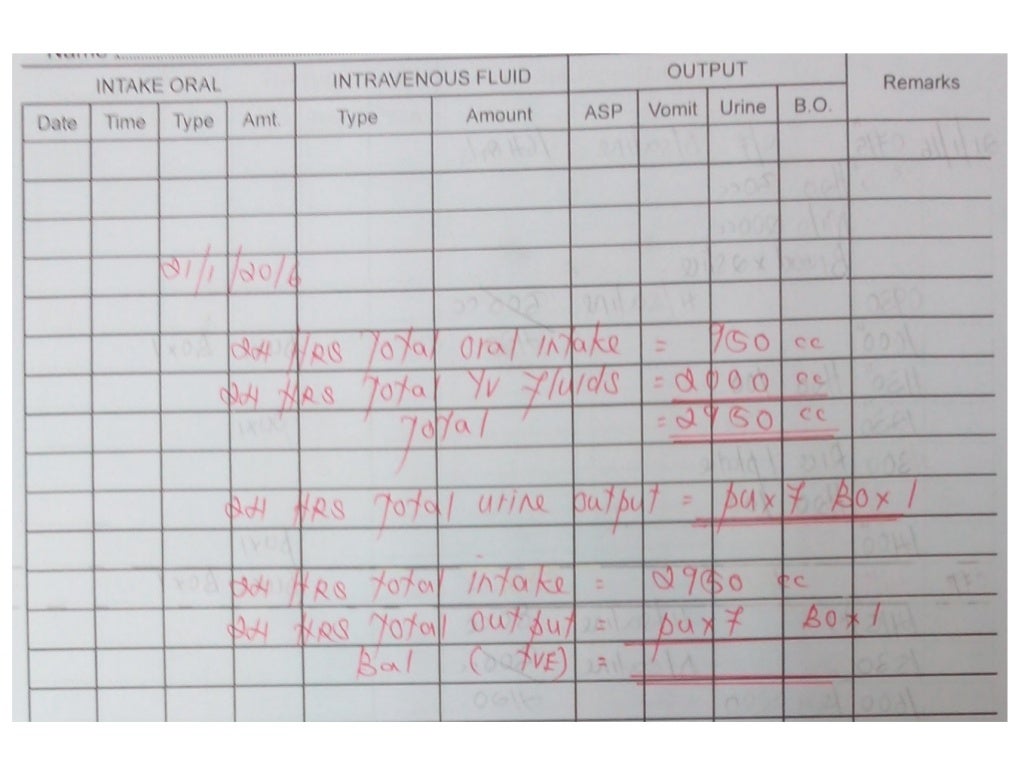 Name :
INTAKE ORAL INTRAVENOUS FLUID OUTPUT Remarks
Date Time Type Amt. Type Amount ASP Vomit Urine B.O.
21/1/2016
24 HRS Total oral intake = 950 cc
24 HRS Total IV Fluids = 2000 cc
Total = 2950 cc
24 HRS Total urine output = pux7 BOx1
24 HRS Total intake = 2950 cc
24 HRS Total output = pux7 BOx1
Bal (+VE) =